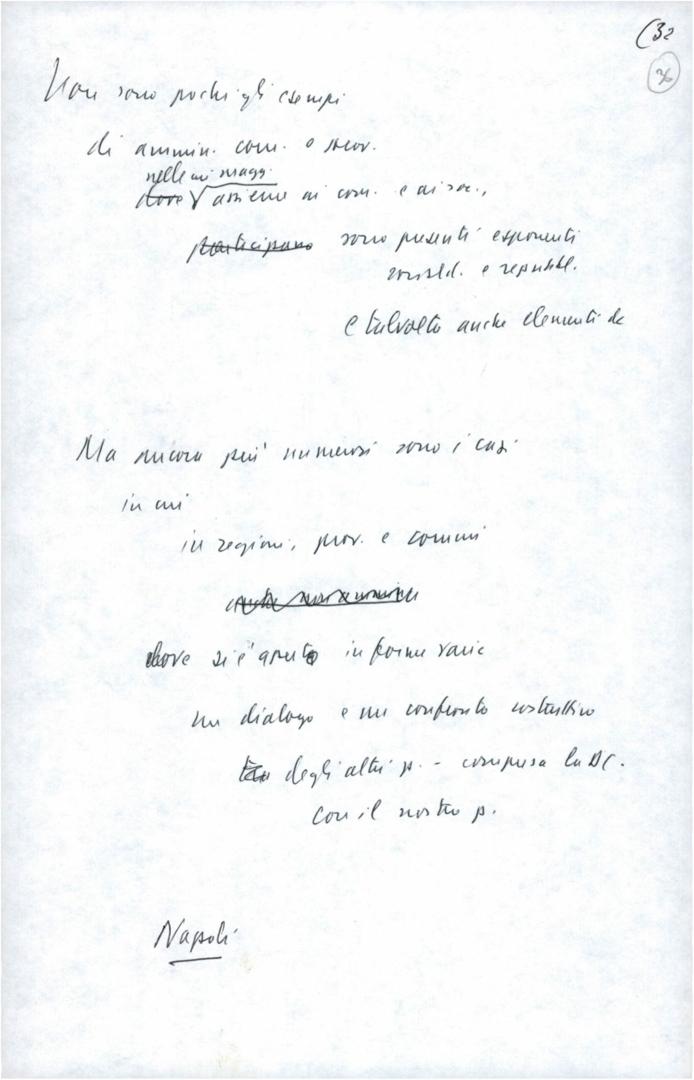 (32
36
Non sono pochi gli esempi
di ammin. com. e
nelle cui magg.
dove assieme ai com. e ai soc.,
participano sono presenti esponenti
sociald. e repubbl.
e talvolta anche elementi dc
Ma ancora più numerosi sono i casi
in cui
in regioni, prov. e comuni
dove si è aperto in forme varie
un dialogo e un confronto costruttivo
degli altri p. - compresa la DC.
con il nostro p.
Napoli